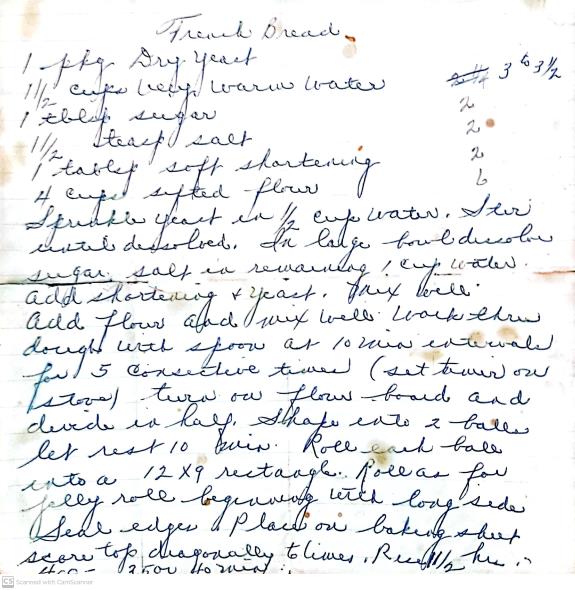 French Bread
1 pkg Dry Yeast
1 1/2 cups Very Warm Water 3 to 3 1/2
1 tblsp sugar 2
1 1/2 teasp salt 2
1 tablsp soft shortening 2
4 cups sifted flour 6
Sprinkle yeast in 1/2 cup water. Stir
until dissolved. In large bowl dissolve
sugar, salt in remaining 1 cup water.
add shortening & yeast. Mix well.
Add flour and mix well. Work thru
dough with spoon at 10 min intervals
for 5 consective times (set timer on
stove) turn on flour board and
divide in half. Shape into 2 balls
let rest 10 min. Roll each ball
into a 12 X 9 rectangle. Roll as for
jelly roll beginning with long side
Seal edges. Place on baking sheet
score top diagonally 6 times. Rise 1 1/2 hr.
400 - 35 or 40 min.
CS Scanned with CamScanner